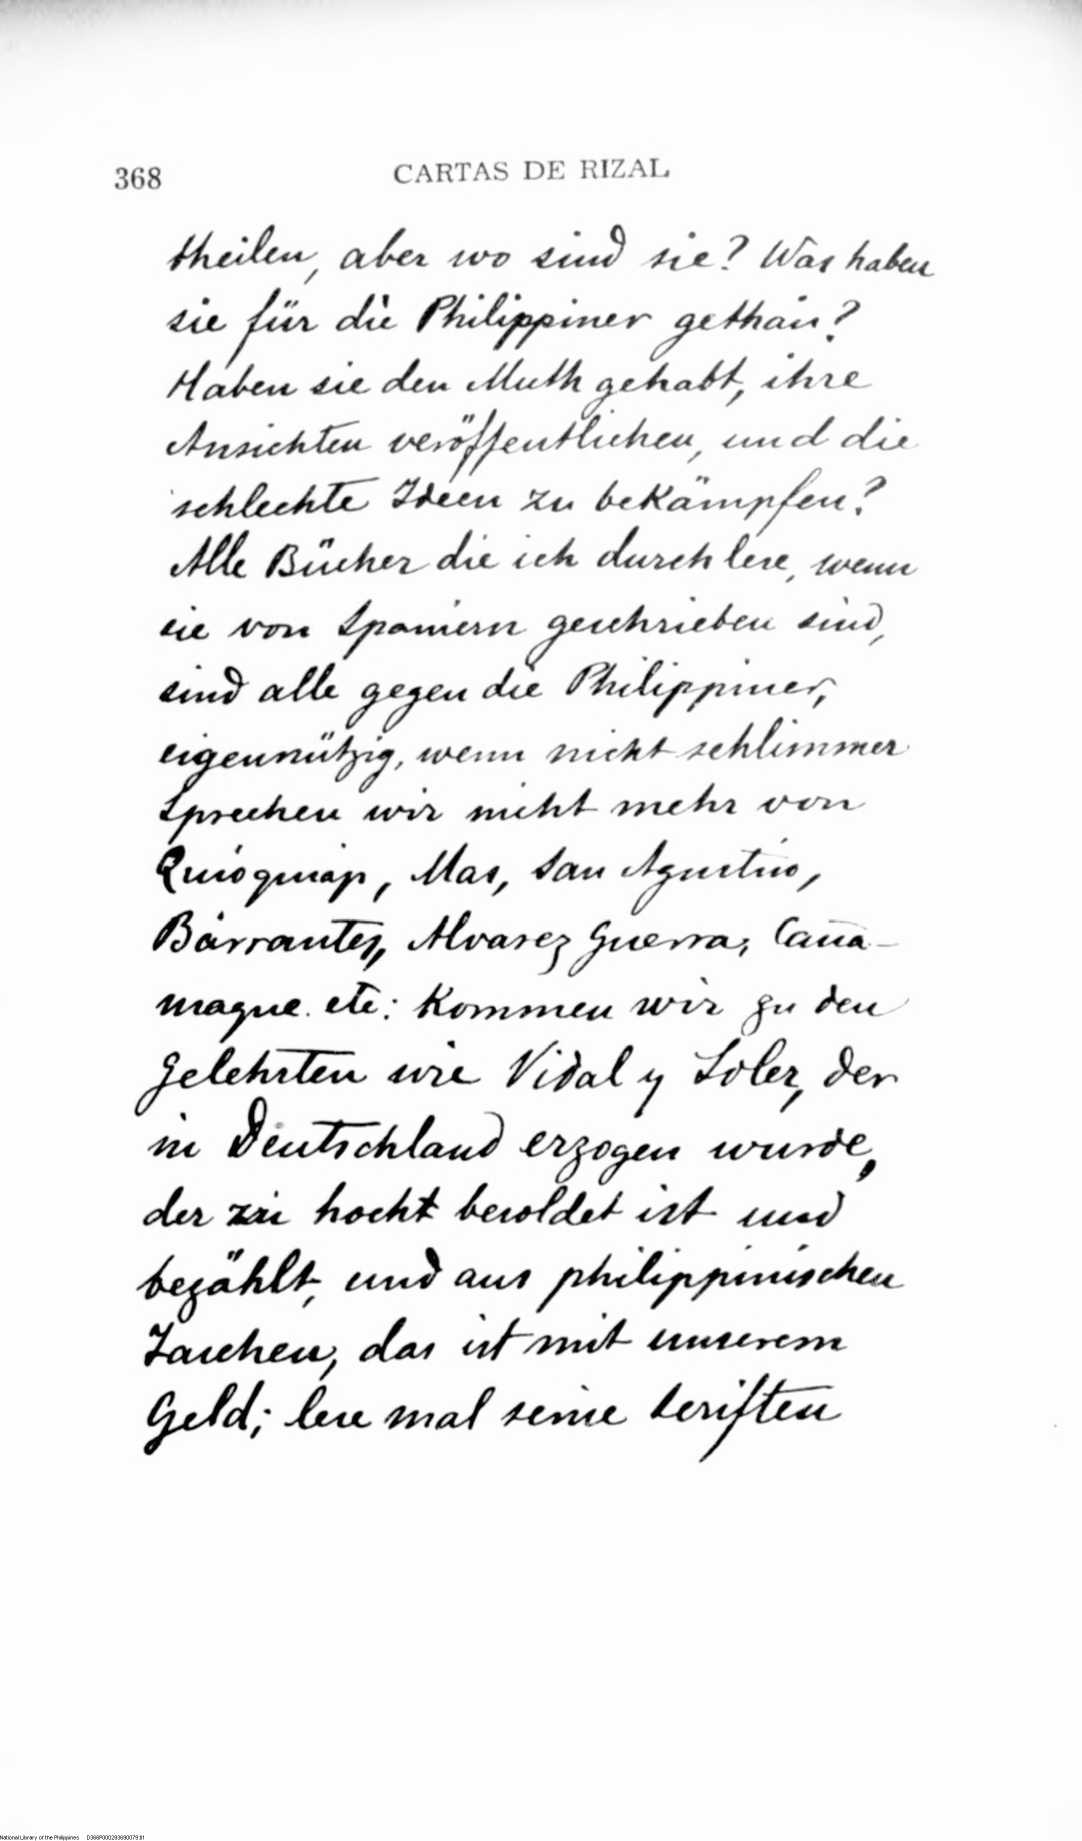 368 CARTAS DE RIZAL
theilen, aber wo sind sie? Was haben
sie für die Philippiner gethan?
Haben sie den Muth gehabt, ihre
Ansichten veröffentlichen, und die
schlechte Ideen zu bekämpfen?
Alle Bücher die ich durch lese, wenn
sie von Spaniern geschrieben sind,
sind alle gegen die Philippiner,
eigennützig, wenn nicht schlimmer
Sprechen wir nicht mehr von
Quioquiap, Mas, San Agustin,
Barrantes, Alvarez Guerra, Caña-
maque. etc: Kommen wir zu den
Gelehrten wie Vidal y Soler, der
in Deutschland erzogen wurde,
der zu hocht besoldet ist und
bezählt, und aus philippinischen
Taschen, das ist mit unserem
Geld; lese mal seine Scriften
National Library of the Philippines